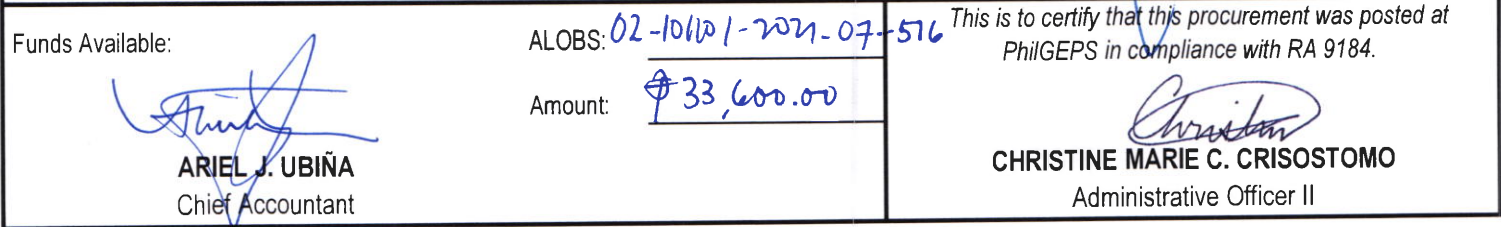 Funds Available:
ARIEL J. UBIÑA
Chief Accountant
ALOBS: 02-101101-2021-07-516
Amount: ₱ 33,600.00
This is to certify that this procurement was posted at
PhilGEPS in compliance with RA 9184.
CHRISTINE MARIE C. CRISOSTOMO
Administrative Officer II